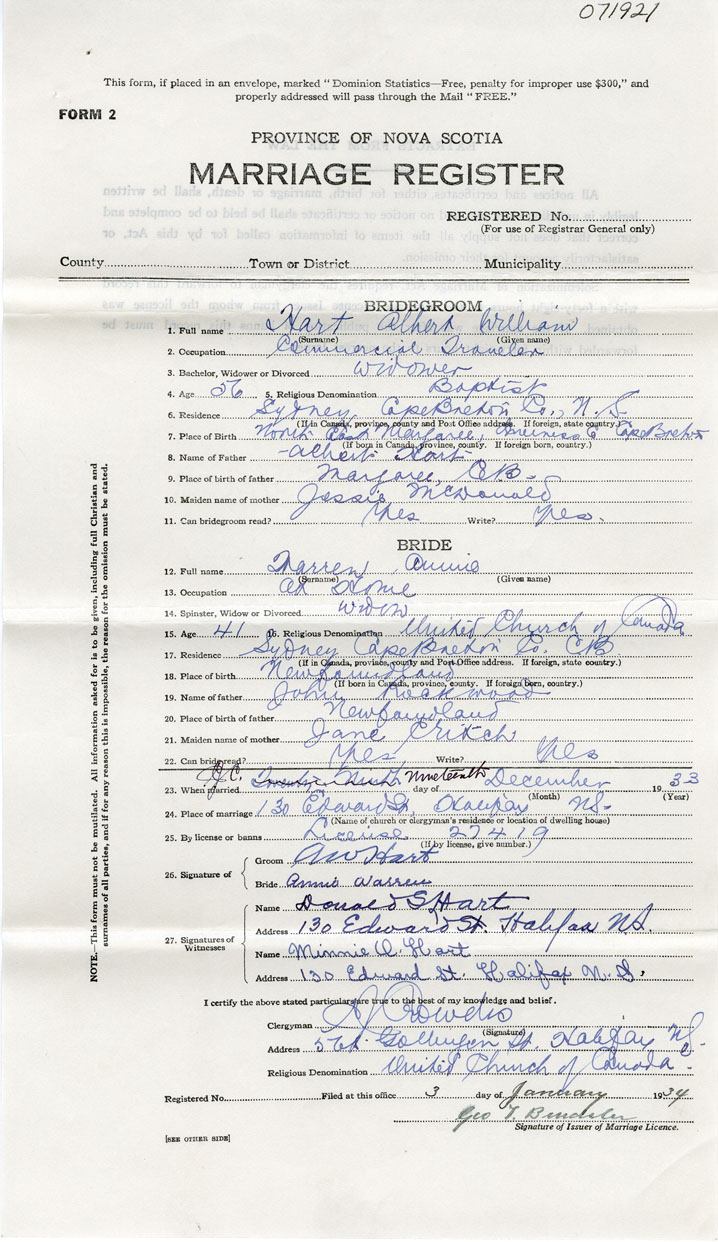 071921
This form, if placed in an envelope, marked “ Dominion Statistics—Free, penalty for improper use $300,” and
properly addressed will pass through the Mail “ FREE.”
FORM 2
PROVINCE OF NOVA SCOTIA
MARRIAGE REGISTER
REGISTERED No.
(For use of Registrar General only)
County Town or District Municipality
BRIDEGROOM
1. Full name Hart Albert William
(Surname) (Given name)
2. Occupation Commercial Traveler
3. Bachelor, Widower or Divorced widower
4. Age 56 5. Religious Denomination Baptist
6. Residence Sydney, Cape Breton Co., N.S.
(If in Canada, province, county and Post Office address. If foreign, state country.)
7. Place of Birth North East Margaree, Inverness Co Cape Breton
(If born in Canada, province, county. If foreign born, country.)
8. Name of Father Albert Hart
9. Place of birth of father Margaree, C.B.
10. Maiden name of mother Jessie McDonald
11. Can bridegroom read? Yes Write? Yes.
BRIDE
12. Full name Warren Annie
(Surname) (Given name)
13. Occupation At Home
14. Spinster, Widow or Divorced widow
15. Age 41 16. Religious Denomination United Church of Canada
17. Residence Sydney Cape Breton Co. C.B.
(If in Canada, province, county and Post Office address. If foreign, state country.)
18. Place of birth Newfoundland
(If born in Canada, province, county. If foreign born, country.)
19. Name of father John Rockwood
20. Place of birth of father Newfoundland
21. Maiden name of mother Jane Critch
22. Can bride read? Yes Write? Yes
23. When married Nineteenth day of December 1933
(Month) (Year)
24. Place of marriage 130 Edward St Halifax N.S.
(Name of church or clergyman's residence or location of dwelling house)
25. By license or banns License 27419
(If by license, give number.)
26. Signature of
Groom A W Hart
Bride Annie Warren
27. Signatures of Witnesses
Name Donald S Hart
Address 130 Edward St. Halifax NS.
Name Minnie A. Hart
Address 130 Edward St. Halifax N.S.
I certify the above stated particulars are true to the best of my knowledge and belief.
Clergyman
(Signature)
Address St. Halifax NS.
Religious Denomination United Church of Canada
Registered No. Filed at this office 3 day of January 1934
Geo T.
Signature of Issuer of Marriage Licence.
[SEE OTHER SIDE]
NOTE.—This form must not be mutilated. All information asked for is to be given, including full Christian and
surnames of all parties, and if for any reason this is impossible, the reason for the omission must be stated.